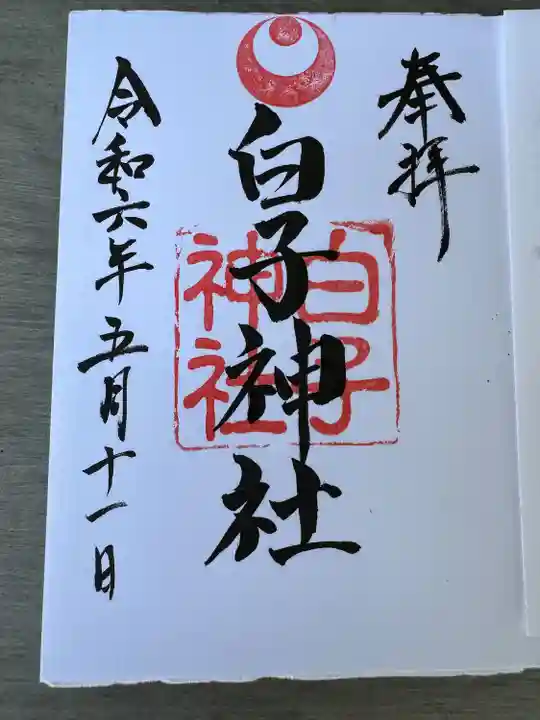 奉拝
白子神社
白子神社
令和六年五月十一日